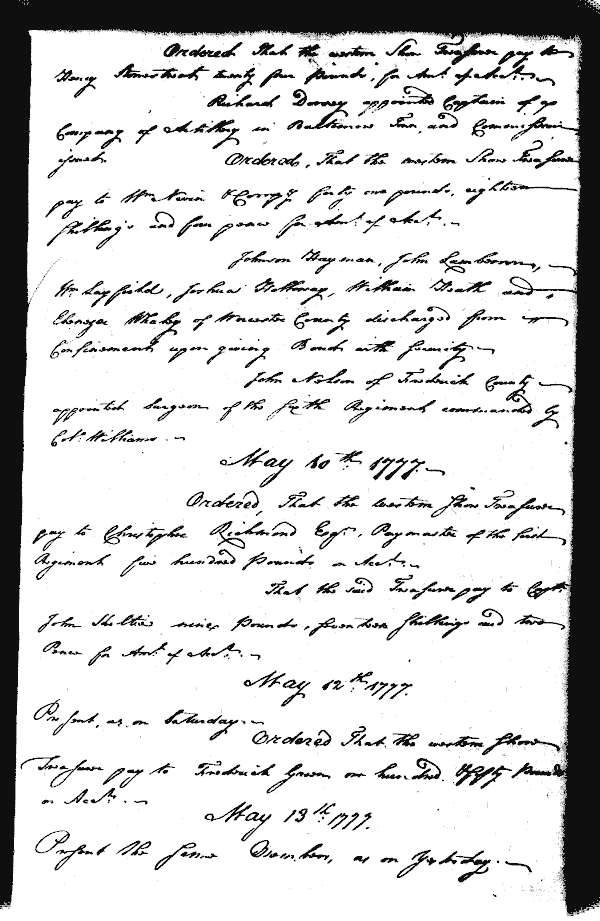 Ordered That the western Shore Treasurer pay to
Henry twenty five pounds, for Amt. of Acct.
Richard Dorsey appointed Captain of a
Company of Artillery in Baltimore Town and Commission
issued.
Ordered, That the western Shore Treasurer
pay to Wm Nevin forty one pounds, eighteen
Shillings and four pence for Amt. of Acct.
Johnson Hayman, John
Wm. Layfield, Joshua Holloway, William Heath and
Ebenezer of Worcester County discharged from
Confinement upon giving Bond with Security.
John Nelson of Frederick County
appointed Surgeon of the sixth Regiment commanded by
Col. Williams.
May 10th 1777.
Ordered, That the western Shore Treasurer
pay to Christopher Richmond Esqr. Paymaster of the first
Regiment five hundred Pounds on Acct.
That the said Treasurer pay to Capt.
John nine Pounds, seventeen Shillings and two
Pence for Amt. of Acct.
May 12th 1777.
Present, as on Saturday.
Ordered That the western Shore
Treasurer pay to Frederick Green one hundred & fifty Pounds
on Acct.
May 13th 1777.
Present the same Members, as on Yesterday.